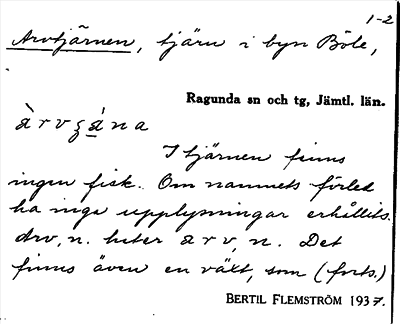 1-2
Arvtjärnen, tjärn i byn Böle,
Ragunda sn och tg, Jämtl. län.
àrvʒána
I tjärnen finns
ingen fisk. Om namnets förled
ha inga upplysningar erhållits.
arv, n. heter arv, n. Det
finns även en växt, som (forts.)
BERTIL FLEMSTRÖM 1937.